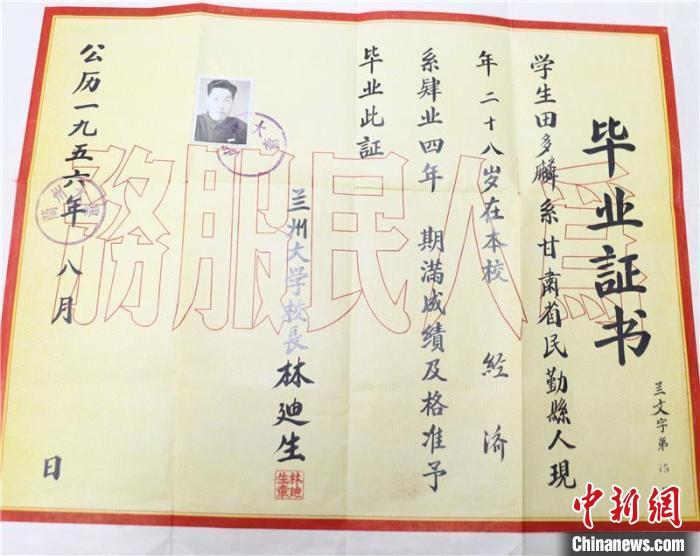 毕业証书
兰文字第 75
学生田多麟系甘肅省民勤縣人現
年二十八岁在本校 經济
系肄业四年 期滿成績及格准予
毕业此証
兰州大学校長 林迪生
林迪生章
公历一九五六年八月 日
為人民服務
中新网
Chinanews.com